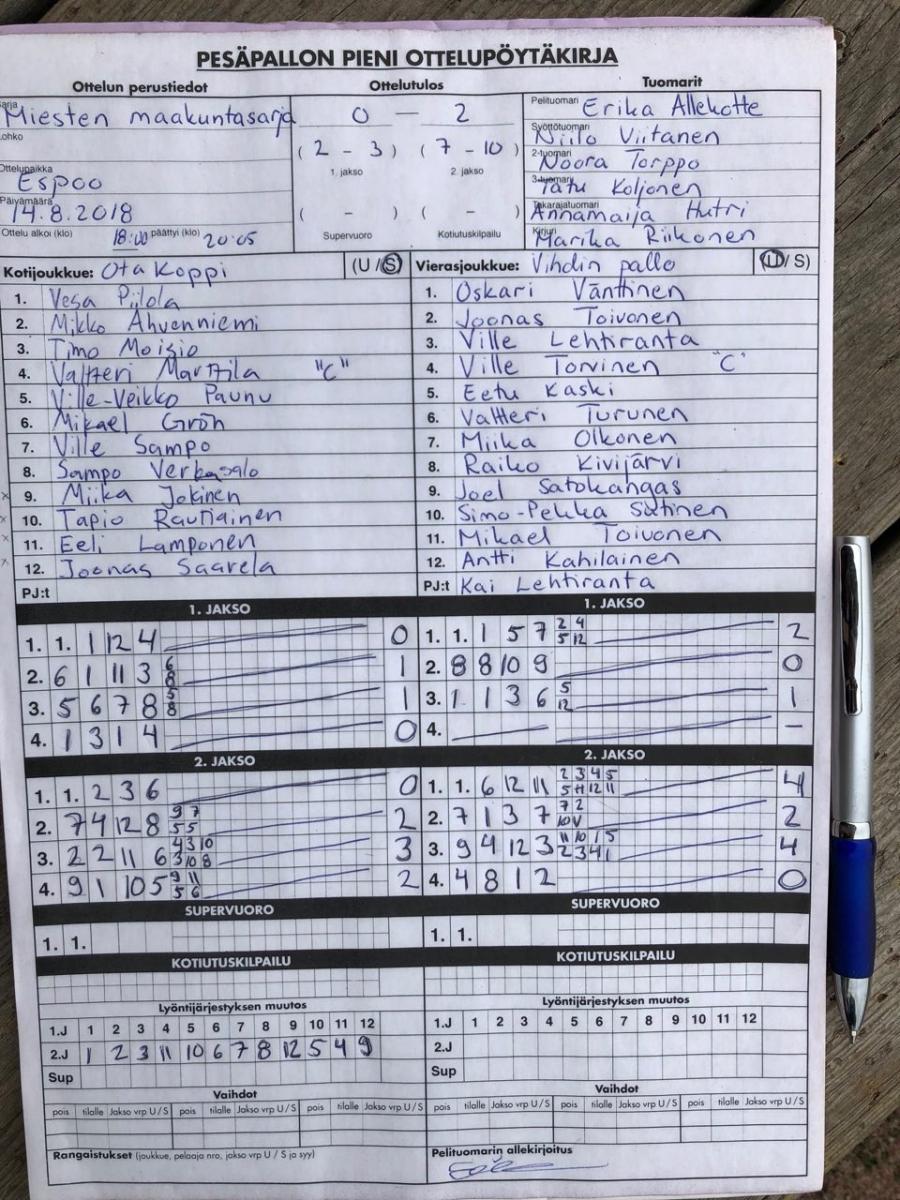 PESÄPALLON PIENI OTTELUPÖYTÄKIRJA
Ottelun perustiedot Ottelutulos Tuomarit
Miesten maakuntasarja 0 — 2 Pelituomari Erika Allekotte
Syöttötuomari Niilo Viitanen
( 2 - 3 ) ( 7 - 10 ) 2-tuomari Noora Torppo
Ottelupaikka Espoo 1. jakso 2. jakso 3-tuomari Tatu Koljonen
Päivämäärä 14.8.2018 ( - ) ( - ) Takarajatuomari Annamaija Hutri
Ottelu alkoi (klo) 18:00 päättyi (klo) 20:05 Supervuoro Kotiutuskilpailu Kirjuri Marika Riikonen
Kotijoukkue: Ota Koppi (U / S) Vierasjoukkue: Vihdin pallo (U / S)
1. Vesa Piilola 1. Oskari Vänttinen
2. Mikko Ahvenniemi 2. Joonas Toivonen
3. Timo Moisio 3. Ville Lehtiranta
4. Valtteri Marttila "C" 4. Ville Torvinen "C"
5. Ville-Veikko Paunu 5. Eetu Kaski
6. Mikael Grön 6. Valtteri Turunen
7. Ville Sampo 7. Miika Olkonen
8. Sampo Verkasalo 8. Raiko Kivijärvi
x 9. Miika Jokinen 9. Joel Satokangas
x 10. Tapio Rautiainen 10. Simo-Pekka Sutinen
x 11. Eeli Lamponen 11. Mikael Toivonen
x 12. Joonas Saarela 12. Antti Kahilainen
PJ:t PJ:t Kai Lehtiranta
1. JAKSO 1. JAKSO
1. 1. 1 12 4 0 1. 1. 1 5 7 2 4 5 12 2
2. 6 1 11 3 6 8 1 2. 8 8 10 9 0
3. 5 6 7 8 5 8 1 3. 1 1 3 6 5 12 1
4. 1 3 1 4 0 4. –
2. JAKSO 2. JAKSO
1. 1. 2 3 6 0 1. 1. 6 12 11 2 3 4 5 5 H 12 11 4
2. 7 4 12 8 9 7 5 5 2 2. 7 1 3 7 7 2 10 V 2
3. 2 2 11 6 4 3 10 3 10 8 3 3. 9 4 12 3 11 10 1 5 2 3 4 1 4
4. 9 1 10 5 9 11 5 6 2 4. 4 8 1 2 0
SUPERVUORO SUPERVUORO
1. 1. 1. 1.
KOTIUTUSKILPAILU KOTIUTUSKILPAILU
Lyöntijärjestyksen muutos Lyöntijärjestyksen muutos
1.J 1 2 3 4 5 6 7 8 9 10 11 12 1.J 1 2 3 4 5 6 7 8 9 10 11 12
2.J 1 2 3 11 10 6 7 8 12 5 4 9 2.J
Sup Sup
Vaihdot Vaihdot
pois tilalle Jakso vrp U / S pois tilalle Jakso vrp U / S pois tilalle Jakso vrp U / S pois tilalle Jakso vrp U / S
Rangaistukset (joukkue, pelaaja nro, jakso vrp U / S ja syy) Pelituomarin allekirjoitus